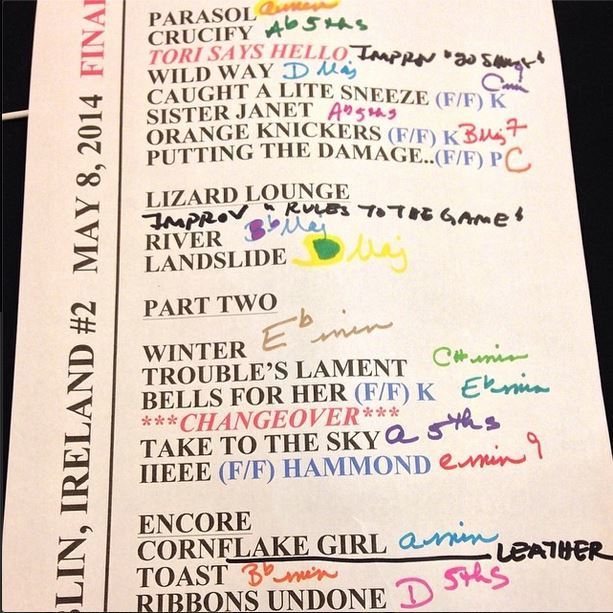 PARASOL amin
CRUCIFY Ab 5ths
TORI SAYS HELLO IMPROV "
WILD WAY D Maj
CAUGHT A LITE SNEEZE (F/F) K Cmin
SISTER JANET Ab 5ths
ORANGE KNICKERS (F/F) K BMaj7
PUTTING THE DAMAGE..(F/F) P C
LIZARD LOUNGE
IMPROV "RULES TO THE GAME"
RIVER Bb Maj
LANDSLIDE D Maj
PART TWO
WINTER Eb min
TROUBLE'S LAMENT C# min
BELLS FOR HER (F/F) K Eb min
***CHANGEOVER***
TAKE TO THE SKY a 5ths
IIEEE (F/F) HAMMOND e min 9
ENCORE
CORNFLAKE GIRL a min LEATHER
TOAST Bb min
RIBBONS UNDONE D 5ths
BLIN, IRELAND #2 MAY 8, 2014 FINA